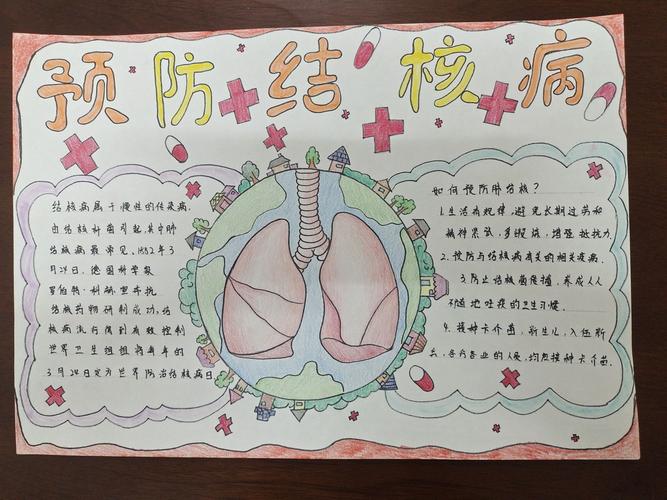 预防结核病
结核病属于慢性的传染病.
由结核杆菌引起,其中肺
结核病最常见.1882年3
月24日,德国科学家
罗伯特·科研里弃抗
结核药物研制成功,结
核病流行得到有效控制
世界卫生组组将每年的
3月24日定为世界防治结核病日
如何预防肺结核?
1.生活有规律,避免长期过劳和
精神紧张,多锻炼,增强抵抗力
2.预防与结核病有关的相关疾病.
3.防止结核菌传播,养成人人
不随地吐痰的卫生习惯.
4.接种卡介苗,新生儿,入伍新
兵,各行各业的人员,均应接种卡介苗.